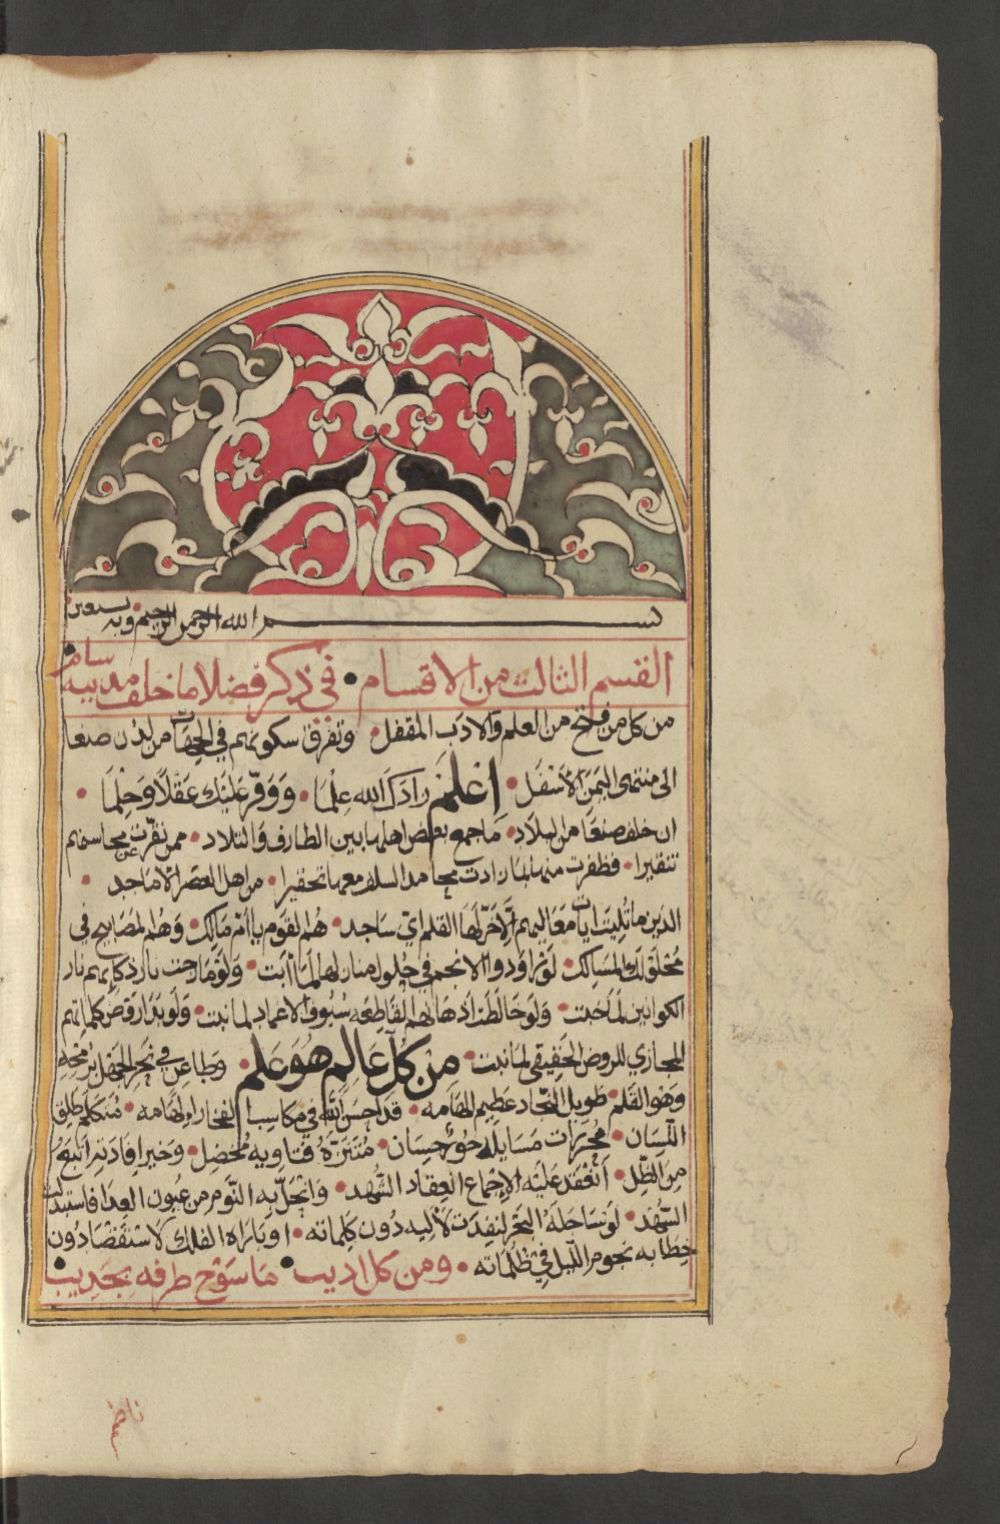 بسم الله الرحمن الرحيم وبه نستعين
القسم الثالث من الاقسام • في ذكر فضلا ما خلف مدينه سام
من كل من فتح من العلم والادب المقفل • وتفرق سكونهم في الجهات من لدن صنعا
الى منتهى اليمن الأسفل • اعلم زادك الله علما • ووفر عليك عقلا وحلما •
ان خلف صنعا من البلاد • ما جمع بعض اهلها بين الطارف والتلاد • ممن نقرت عن محاسنهم
تنقيرا • فظفرت منها بما زادت محامد السلف معها تحقيرا • من اهل العصر الاماجد •
الذين ما تليت ايات معاليهم الا خر لها القلم اي ساجد • هم القوم يا ام مالك • وهم المصابيح في
المسالك • لو راودوا الانجم في حلول منازلهم لما أبت • ولو مازجت نار ذكايهم نار
الكوانين لما خبت • ولو خالطت اذهانهم القاطعه سيوف الاغماد لما نبت • ولو
المجازي للروض الحقيقي لما نبت • من كل عالم هو علم • وطاعن في نحر الجهل برمحه
وهو القلم • طويل النجاد عظيم الهامه • قد احسن الله في مكاسب الفخار الهامه • متكلم طلق
اللسان • محرزات مسايله حور حسان • متنزه فتاويه مخضل • وخير افادته انبع
من الظل • انعقد عليه الاجماع انعقاد الشهد • وانحل به النوم من عيون العدا فاستبدلت
السهد • لو ساجله البحر لنفدت لآليه دون كلماته • او باراه الفلك لاستفضا دون
خطابه نجوم الليل في ظلماته • ومن كل اديب • ما سرح طرفه بجديب •
ناظر